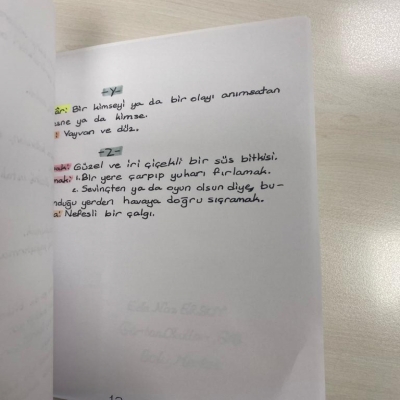 -Y-
âr: Bir kimseyi ya da bir olayı anımsatan
sne ya da kimse.
: Yayvan ve düz.
-Z-
mak: Güzel ve iri çiçekli bir süs bitkisi.
mak: 1. Bir yere çarpıp yukarı fırlamak.
2. Sevinçten ya da oyun olsun diye, bu-
nduğu yerden havaya doğru sıçramak.
a: Nefesli bir çalgı.